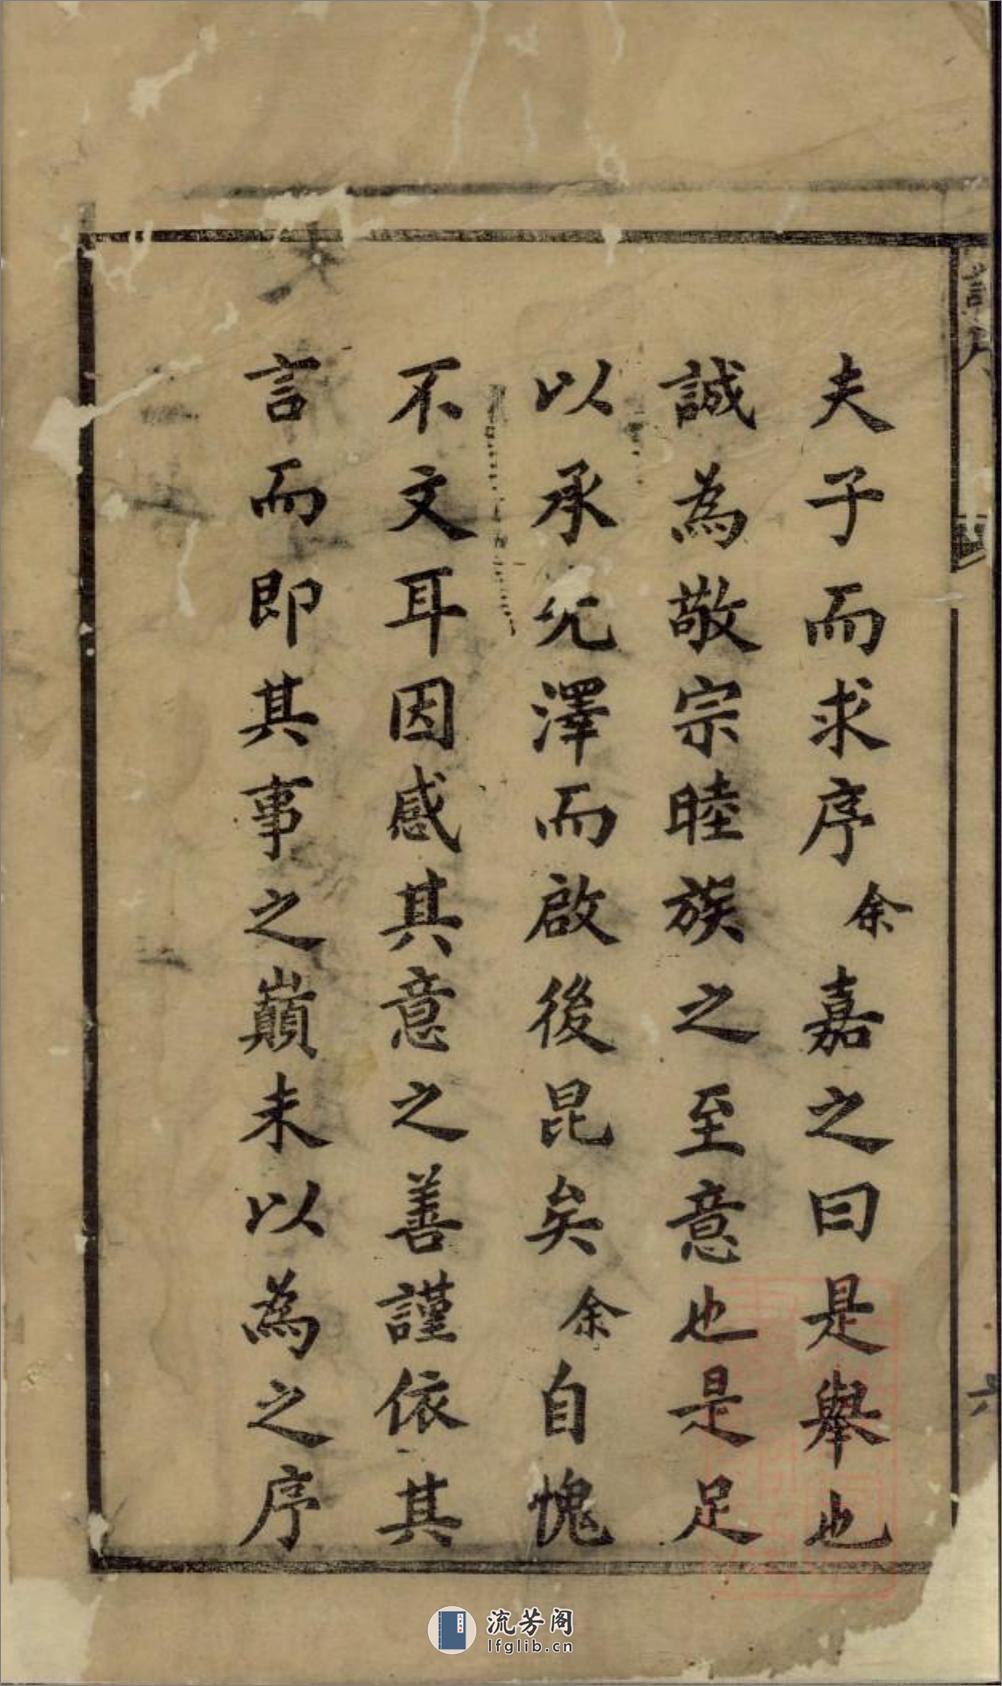 夫子而求序余嘉之曰是舉也
誠為敬宗睦族之至意也是足
以承先澤而啟後昆矣余自愧
不文耳因感其意之善謹依其
言而即其事之巔末以為之序
六
流芳阁
lfglib.cn